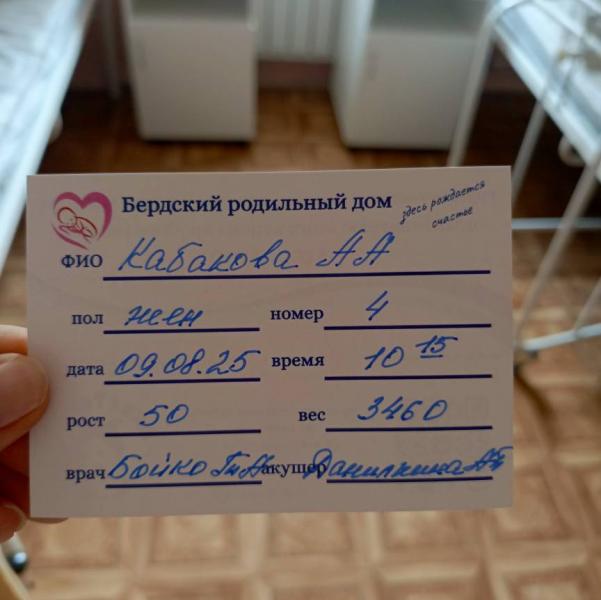 Бердский родильный дом
здесь рождается
счастье
ФИО Кабакова АА
пол жен номер 4
дата 09.08.25 время 10 15
рост 50 вес 3460
врач Бойко акушер Данилкина